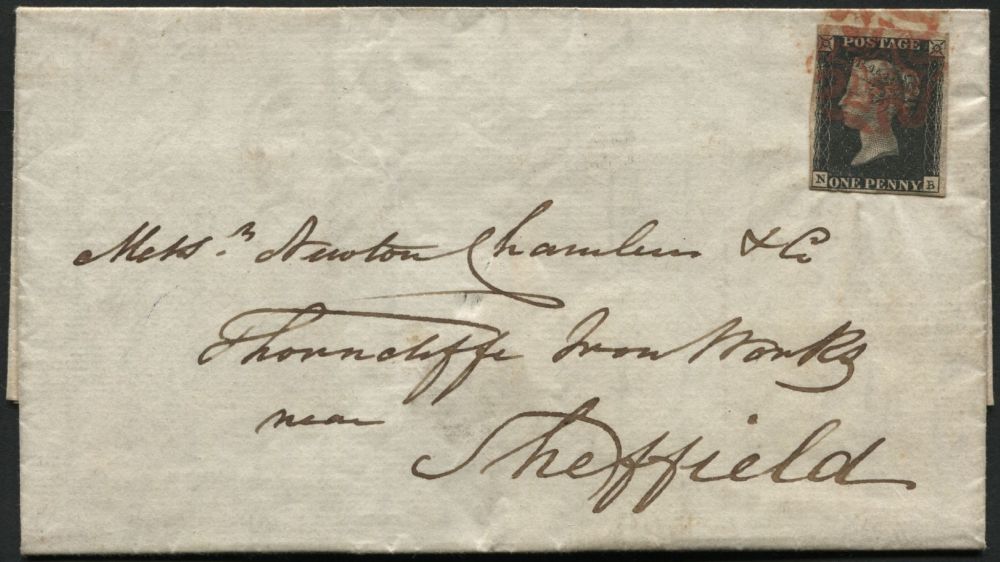 POSTAGE
N ONE PENNY B
Messrs Newton Chambers & Co
Thorncliffe Iron Works
near
Sheffield